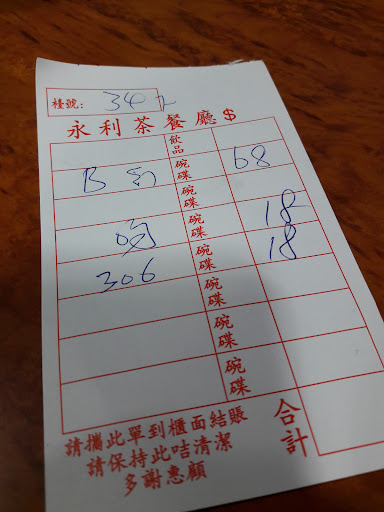 檯號: 34
永利茶餐廳 $
飲品
B 碗碟 68
碗碟
碗碟 18
306 碗碟 18
碗碟
碗碟
碗碟
合計
請攜此單到櫃面結賬
請保持此咭清潔
多謝惠顧